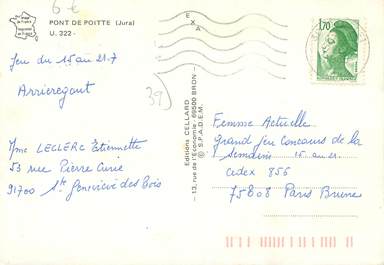 6 €
PONT DE POITTE (Jura)
U. 322 -
Jeu du 15 au 21.7
Arrieregout
39)
Mme LECLERC Etiennette
53 rue Pierre Curie
91700 Ste Geneviève des Bois
Editions CELLARD
- 13, rue de l'Economie - 69500 BRON -
© S.P.A.D.E.M.
E X A
1,70
Femme Actuelle
Grand Jeu Concours de la
Semaine 15 au 21
Cedex 855
75808 Paris Brune